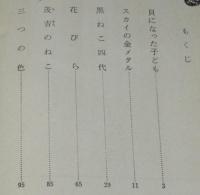 もくじ
貝になった子ども 3
スカイの金メダル 11
黒ねこ四代 29
花びら 65
茂吉のねこ 85
三つの色 95